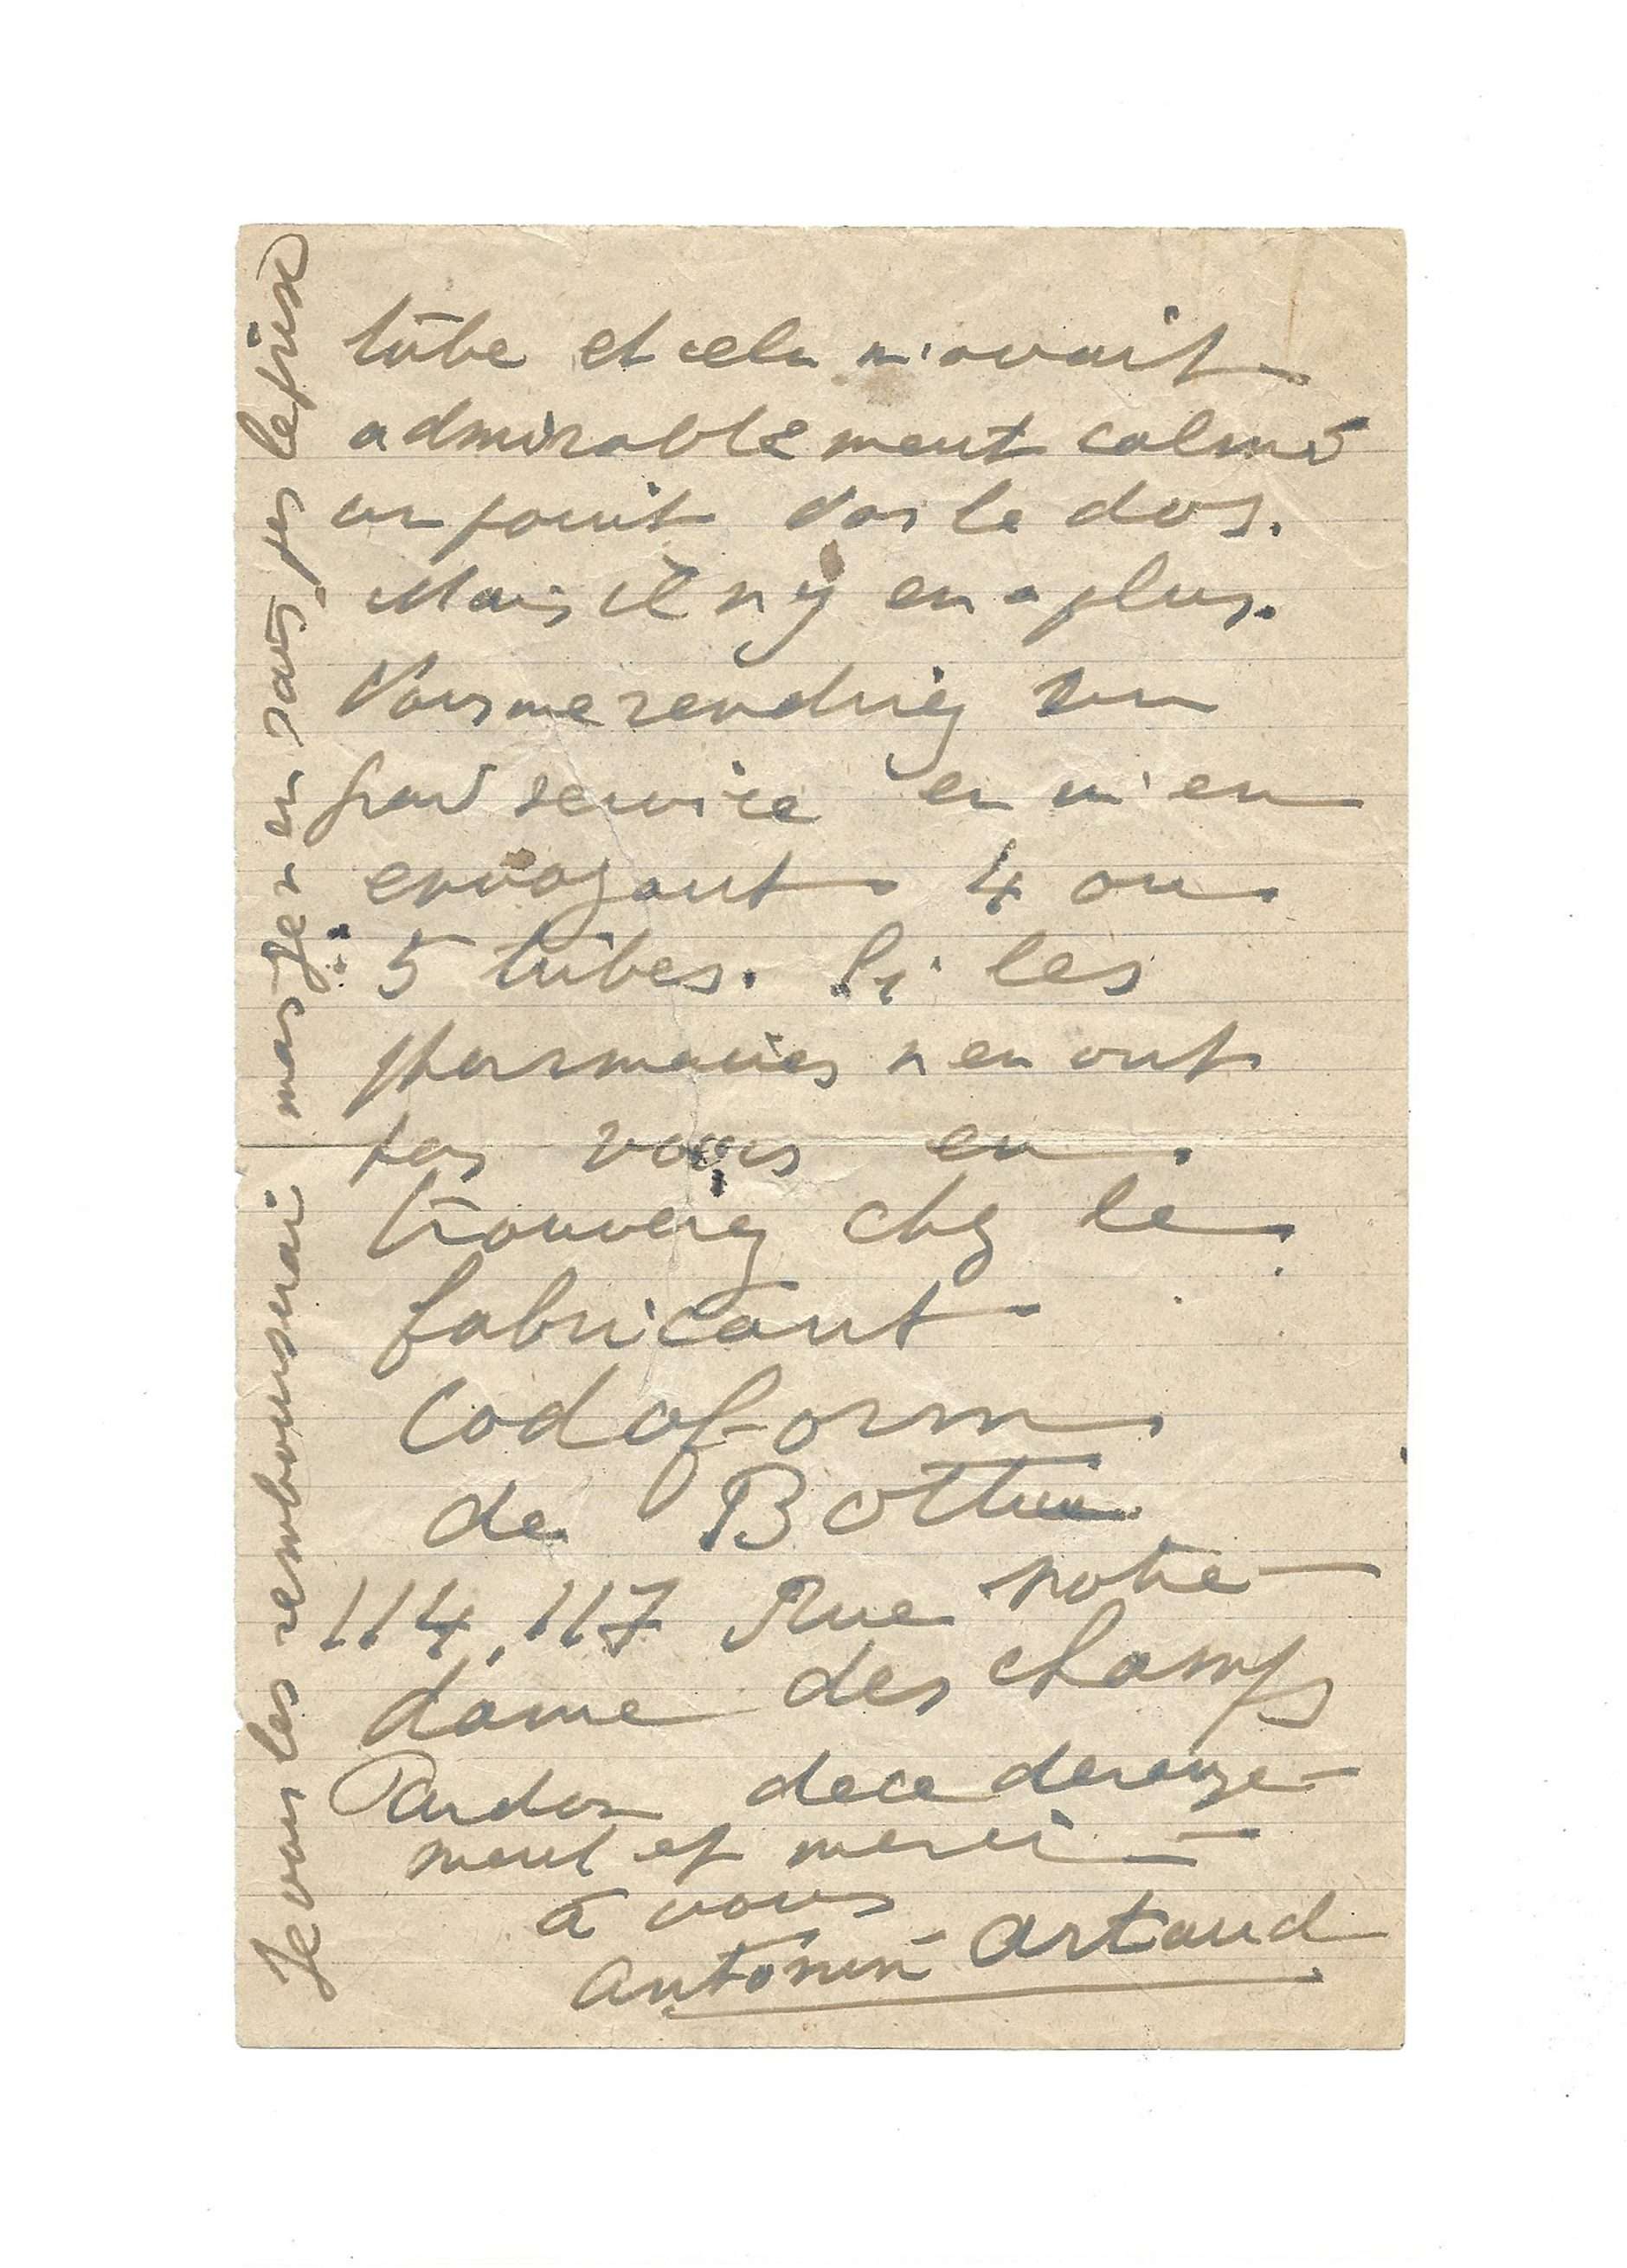 tube et cela m'avait
admirablement calmé
un point dans le dos.
Mais il n'y en a plus.
Vous me rendriez un
grand service en m'en
envoyant 4 ou
5 tubes. Si les
pharmacies n'en ont
pas vous en
trouverez chez le
fabricant
Codoform
de Bottu
114, 117 Rue notre
dame des champs
Pardon de ce derange-
ment et merci
à vous
Antonin Artaud
Je vous les rembourserai mais je n'en sais pas le prix